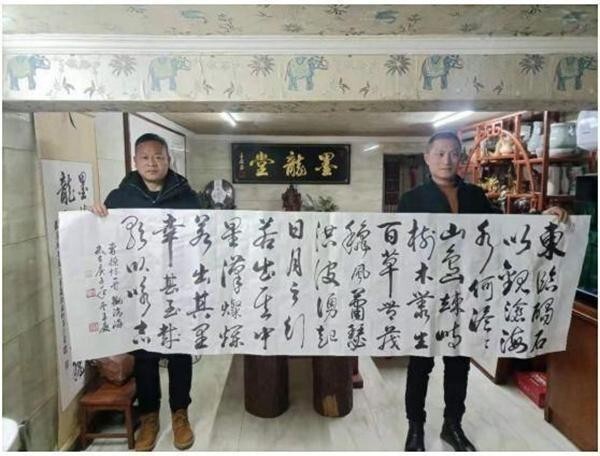 墨龍堂
東臨碣石
以觀滄海
水何澹〻
山島竦峙
樹木叢生
百草豐茂
秋風蕭瑟
洪波湧起
日月之行
若出其中
星漢燦爛
若出其里
幸甚至哉
歌以詠志
曹操詩一首 觀滄海
墨龍